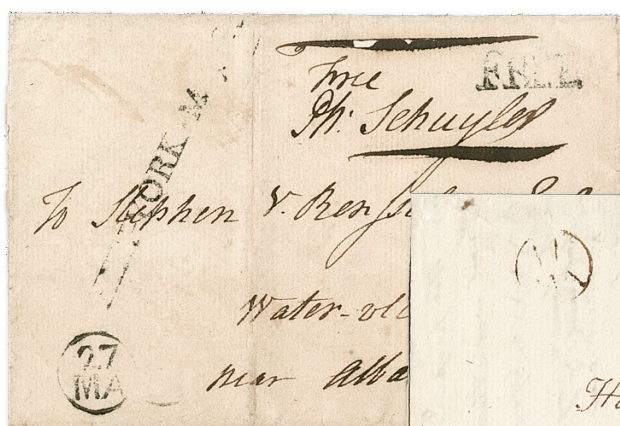 Free
FREE
Ph: Schuyler
YORK M
To Stephen V. Rens
Water-vli
near Alba
27
MA
Ha